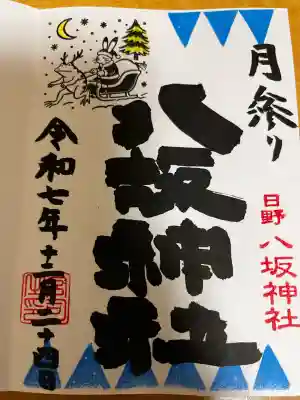 月参り
日野 八坂神社
八坂神社
令和七年十二月二十四日